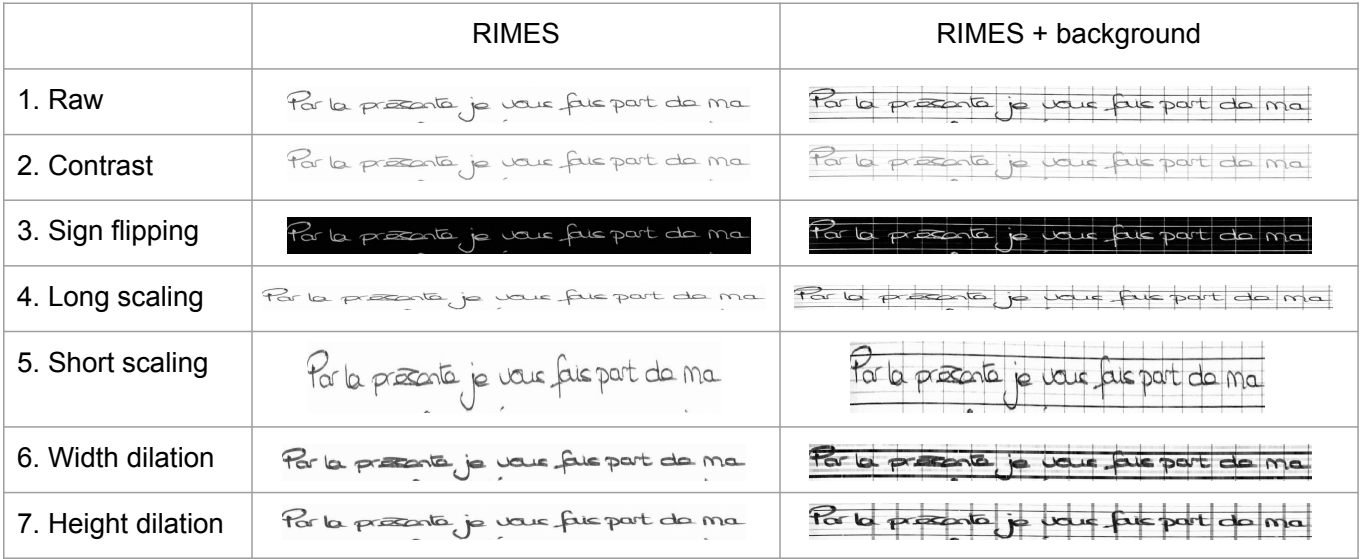 RIMES RIMES + background
1. Raw Par la présente je vous fais part de ma Par la présente je vous fais part de ma
2. Contrast Par la présente je vous fais part de ma Par la présente je vous fais part de ma
3. Sign flipping Par la présente je vous fais part de ma Par la présente je vous fais part de ma
4. Long scaling Par la présente je vous fais part de ma Par la présente je vous fais part de ma
5. Short scaling Par la présente je vous fais part de ma Par la présente je vous fais part de ma
6. Width dilation Par la présente je vous fais part de ma Par la présente je vous fais part de ma
7. Height dilation Par la présente je vous fais part de ma Par la présente je vous fais part de ma